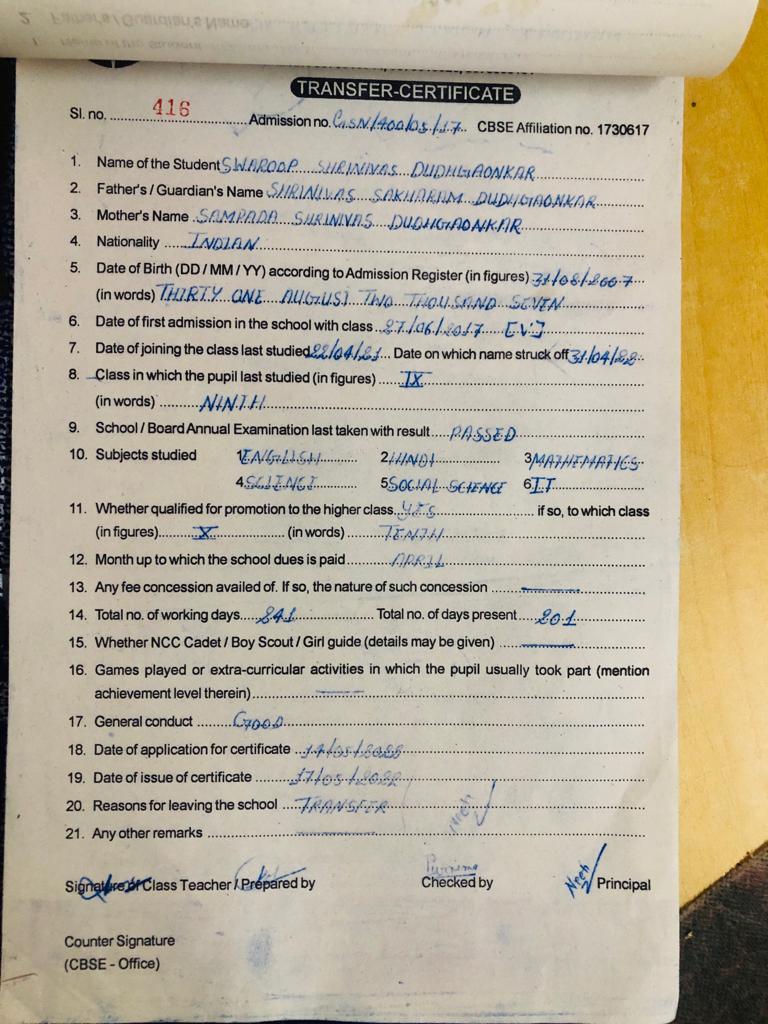 TRANSFER-CERTIFICATE
Sl. no. 416 Admission no. GSN/400/05/17 CBSE Affiliation no. 1730617
1. Name of the Student SWAROOP SHRINIVAS DUDHGAONKAR
2. Father's / Guardian's Name SHRINIVAS SAKHARAM DUDHGAONKAR
3. Mother's Name SAMPADA SHRINIVAS DUDHGAONKAR
4. Nationality INDIAN
5. Date of Birth (DD / MM / YY) according to Admission Register (in figures) 31/08/2007
(in words) THIRTY ONE AUGUST TWO THOUSAND SEVEN
6. Date of first admission in the school with class 27/06/2017 [V]
7. Date of joining the class last studied 22/04/21 Date on which name struck off 31/04/22
8. Class in which the pupil last studied (in figures) IX
(in words) NINTH
9. School / Board Annual Examination last taken with result PASSED
10. Subjects studied 1 ENGLISH 2 HINDI 3 MATHEMATICS
4 SCIENCE 5 SOCIAL SCIENCE 6 IT
11. Whether qualified for promotion to the higher class YES if so, to which class
(in figures) X (in words) TENTH
12. Month up to which the school dues is paid APRIL
13. Any fee concession availed of. If so, the nature of such concession
14. Total no. of working days 241 Total no. of days present 201
15. Whether NCC Cadet / Boy Scout / Girl guide (details may be given)
16. Games played or extra-curricular activities in which the pupil usually took part (mention
achievement level therein)
17. General conduct GOOD
18. Date of application for certificate 17/05/2022
19. Date of issue of certificate 17/05/2022
20. Reasons for leaving the school TRANSFER
21. Any other remarks
Signature of Class Teacher / Prepared by Checked by Principal
Counter Signature
(CBSE - Office)